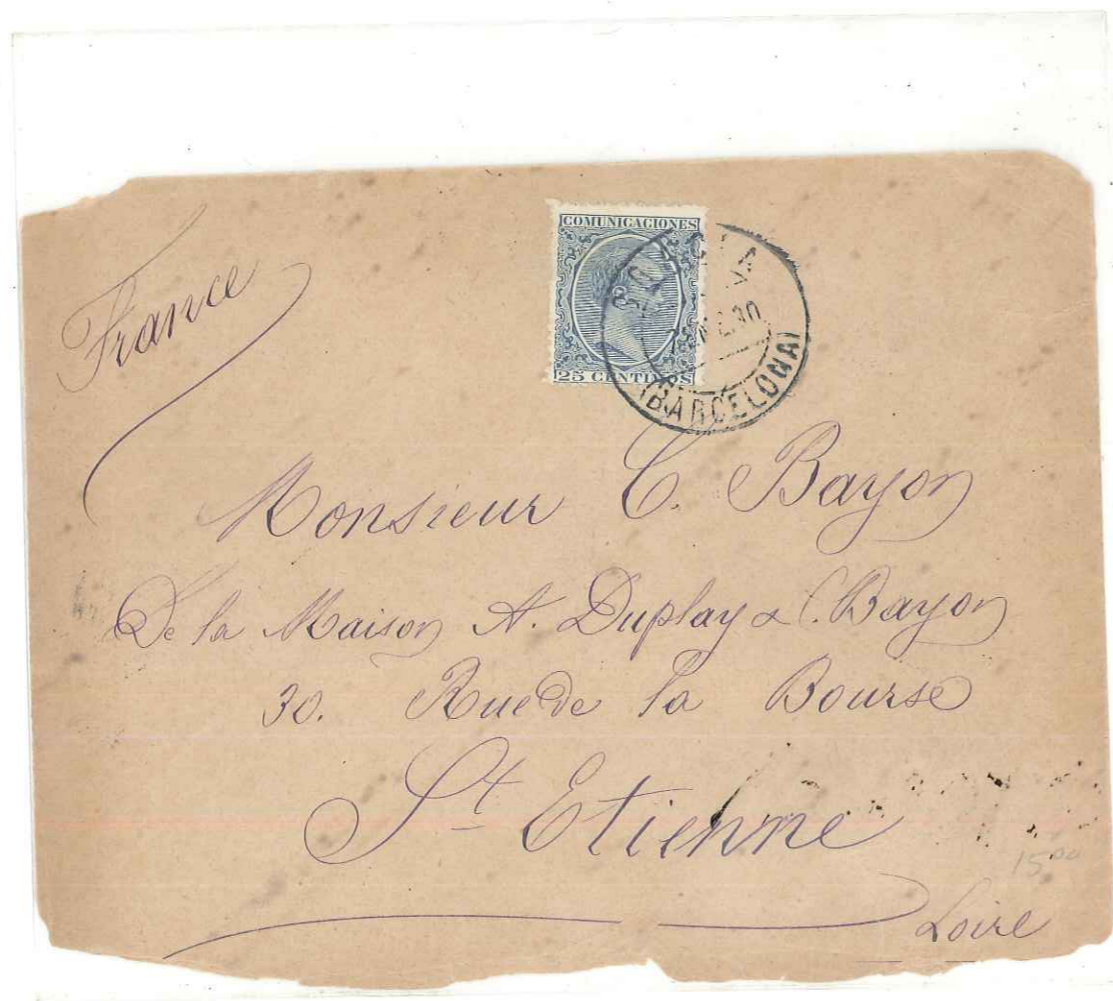 COMUNICACIONES
25 CENTIMOS
(BARCELONA)
France
Monsieur C. Bayon
De la Maison A. Duplay & C. Bayon
30. Rue de la Bourse
St Etienne
Loire
15⁰⁰